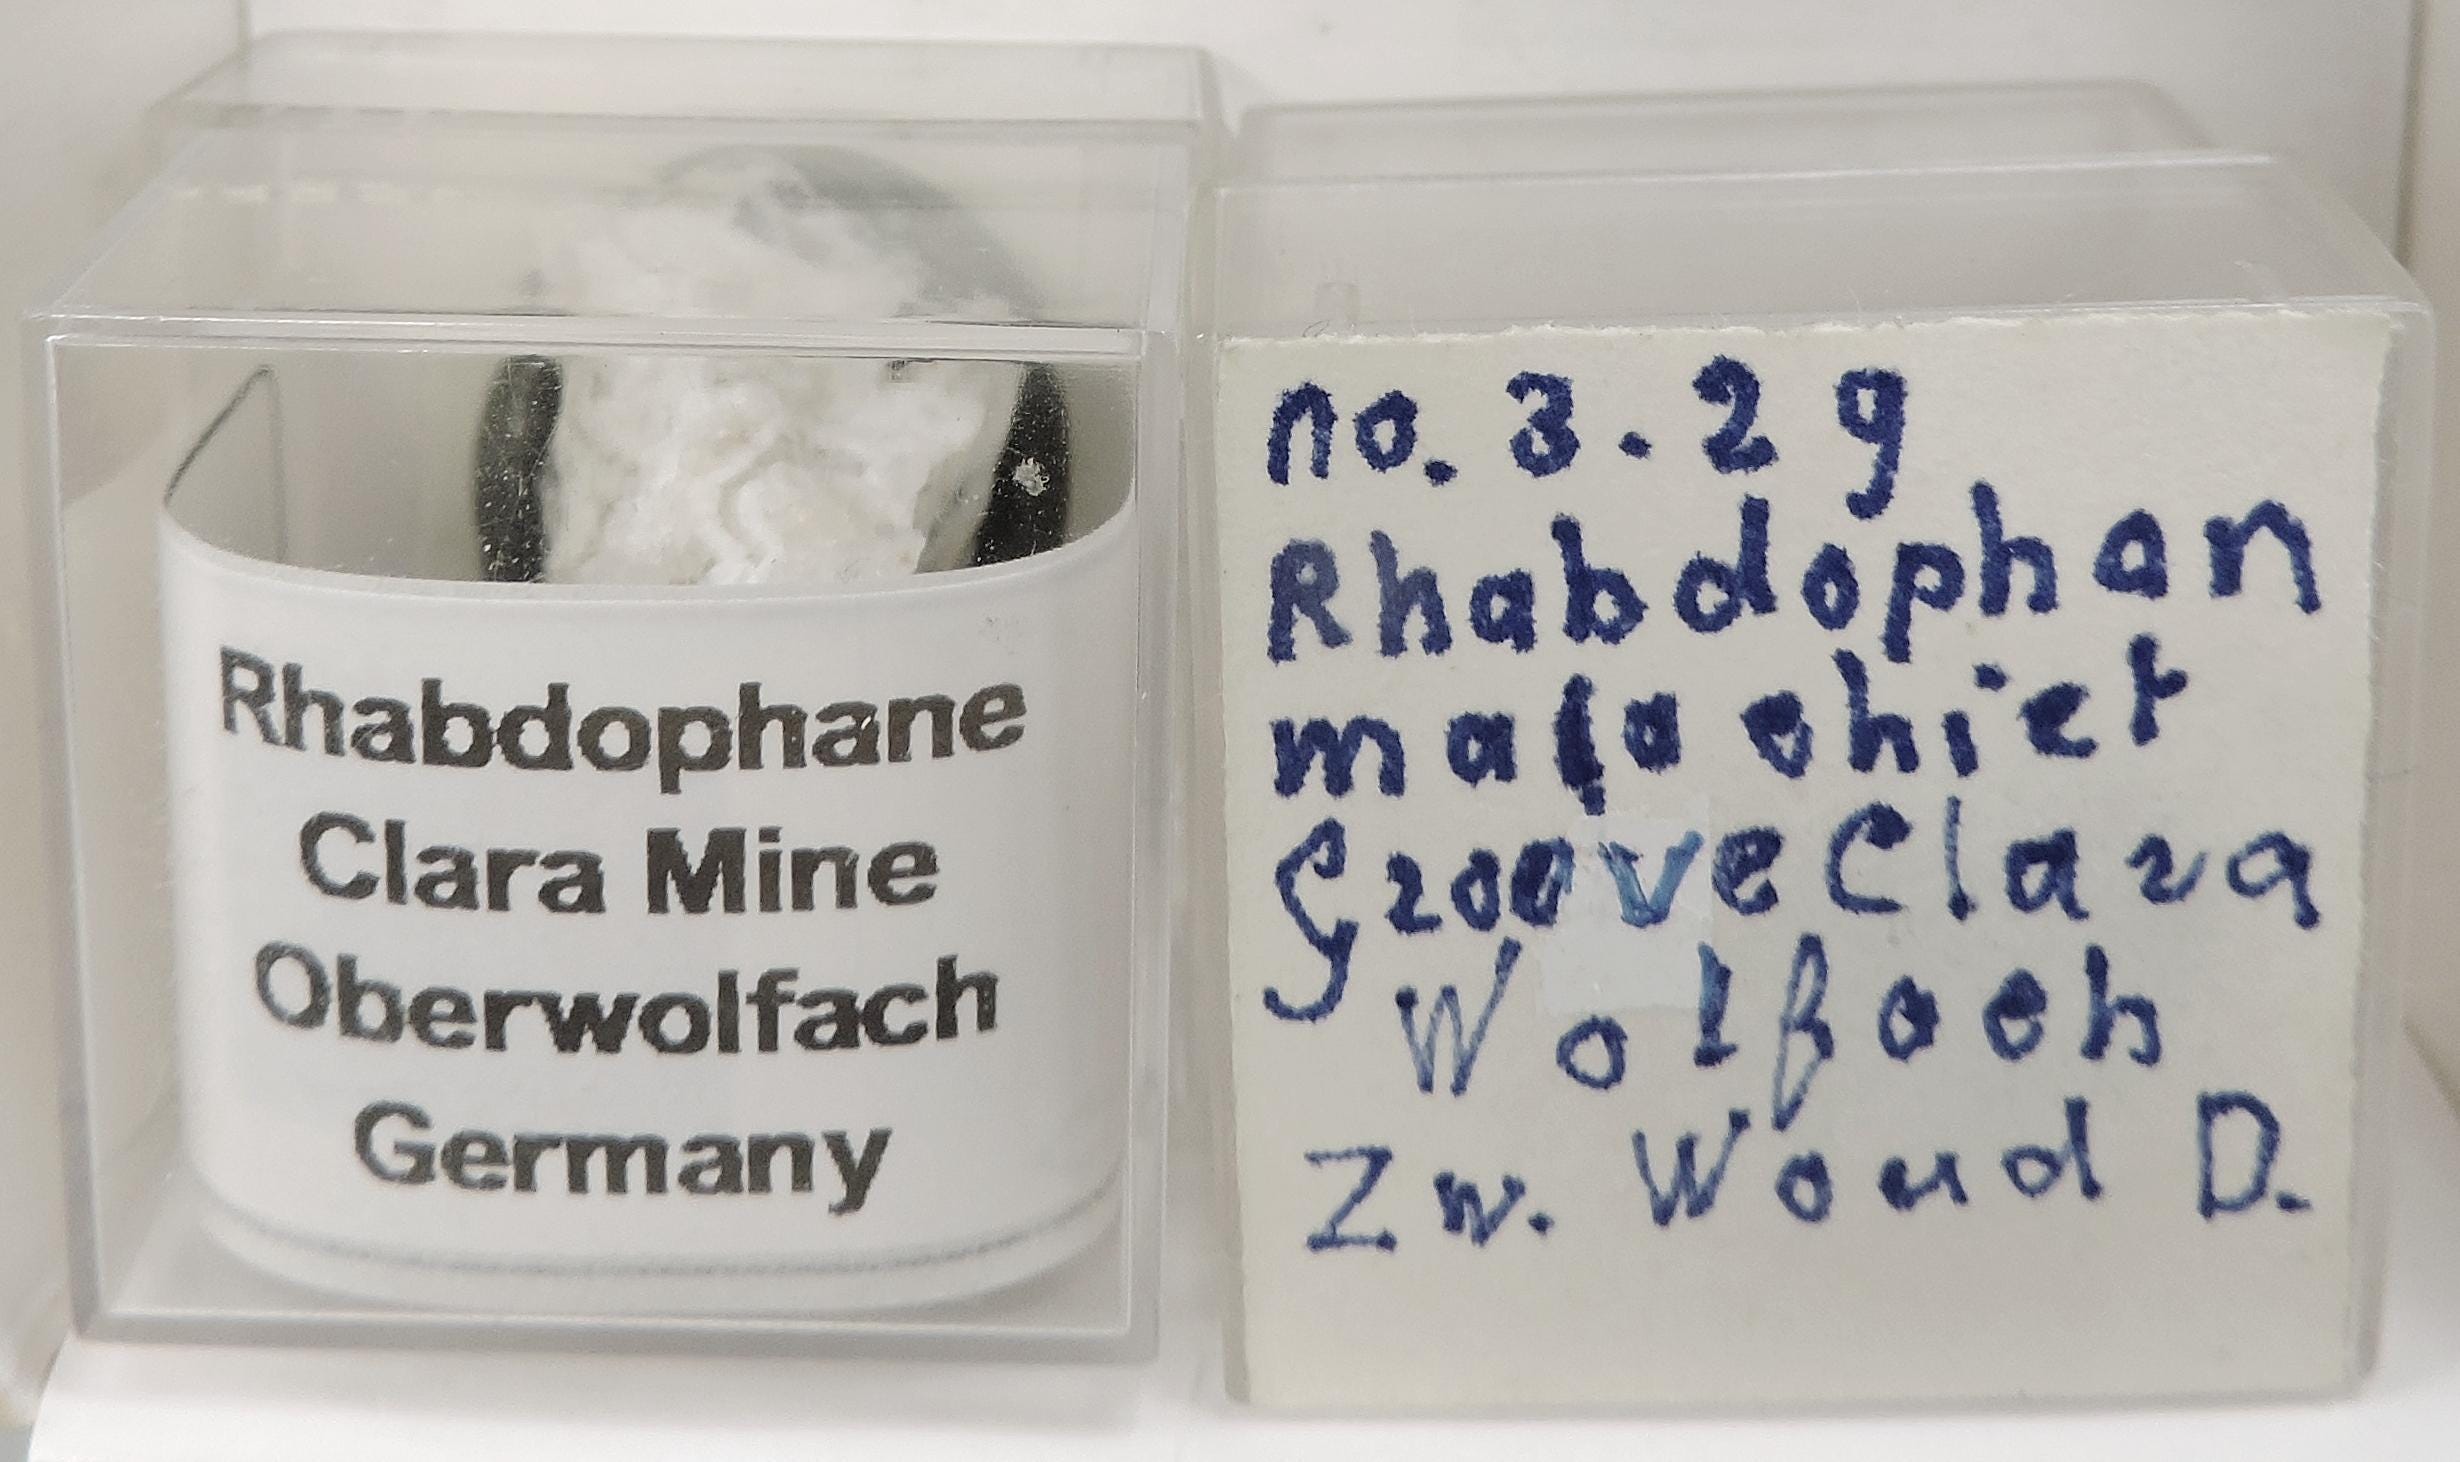 Rhabdophane
Clara Mine
Oberwolfach
Germany
no. 3.29
Rhabdophan
malachiet
Groeve Clara
Wolfach
Zw. Woud D.